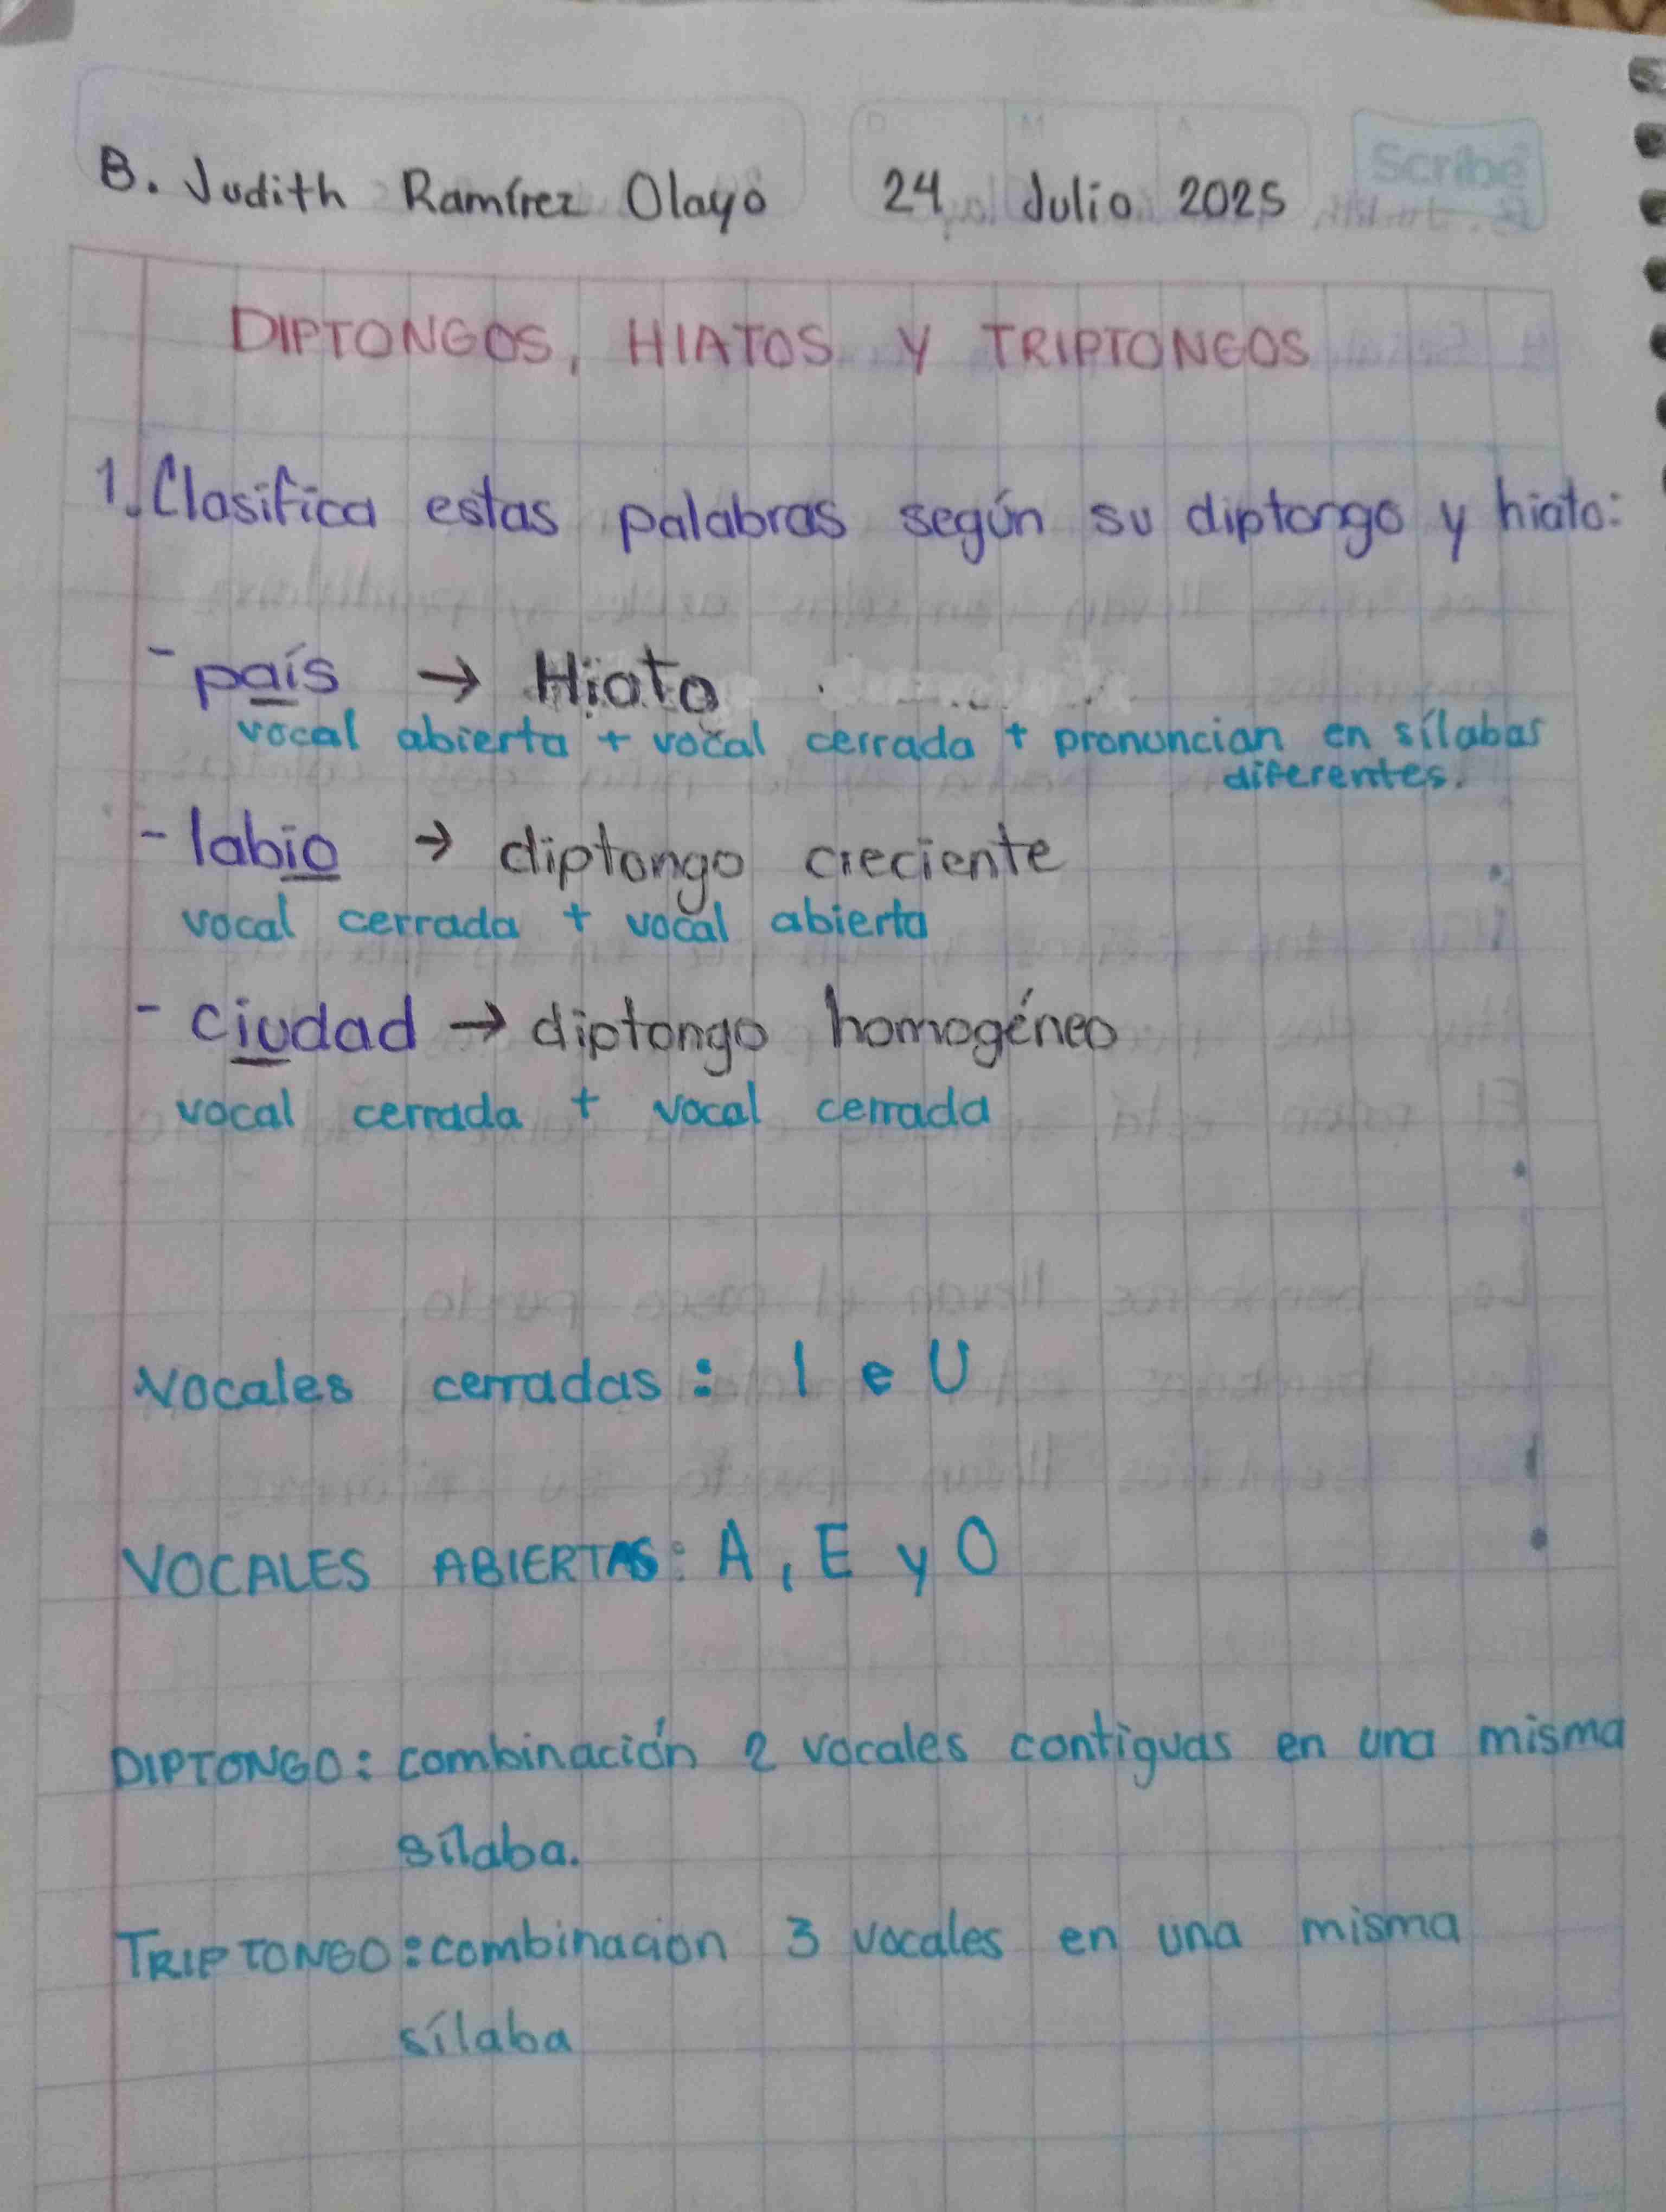 Scribe
B. Judith Ramírez Olayo 24 Julio 2025
DIPTONGOS, HIATOS Y TRIPTONGOS
1. Clasifica estas palabras según su diptongo y hiato:
- país → Hiato
vocal abierta + vocal cerrada + pronuncian en sílabas
diferentes.
- labio → diptongo creciente
vocal cerrada + vocal abierta
- ciudad → diptongo homogéneo
vocal cerrada + vocal cerrada
Vocales cerradas: I e U
VOCALES ABIERTAS: A, E y O
DIPTONGO: combinación 2 vocales contiguas en una misma
sílaba.
TRIPTONGO: combinacion 3 vocales en una misma
sílaba